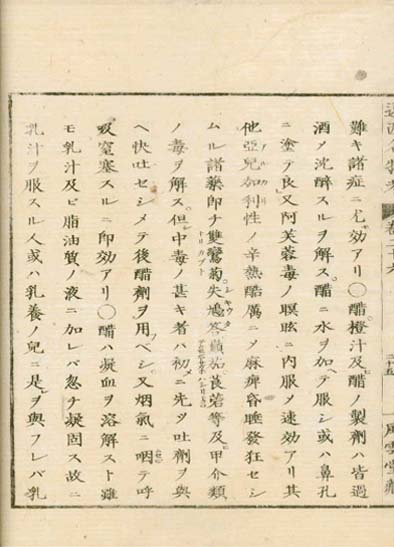 難キ諸症ニ尤効アリ〇醋橙汁及ビ醋ノ製剤ハ皆過
酒メ沈醉スルヲ解ス醋ニ水ヲ加ヘテ服シ或ハ鼻孔
ニ塗テ良又阿芙蓉毒ノ瞑眩ニ内服メ速効アリ其
他亞兒加利性ノ辛熱酷厲ニメ麻痺昏睡發狂セシ
ムル諸藥即チ雙鸞菊トリカブト失鳩答シキウタ莨菪等及ビ甲介類
ノ毒ヲ解ス但シ中毒ノ甚キ者ハ初メニ先ツ吐剤ヲ與
ヘ快吐セシメテ後醋劑ヲ用フベシ又烟氣ニ咽テ呼
吸窒塞スルニ即効アリ〇醋ハ凝血ヲ溶解スト雖
モ乳汁及ビ脂油質ノ液ニ加レバ忽チ凝固ス故ニ
乳汁ヲ服スル人或ハ乳養ノ兒ニ是ヲ與フレバ乳